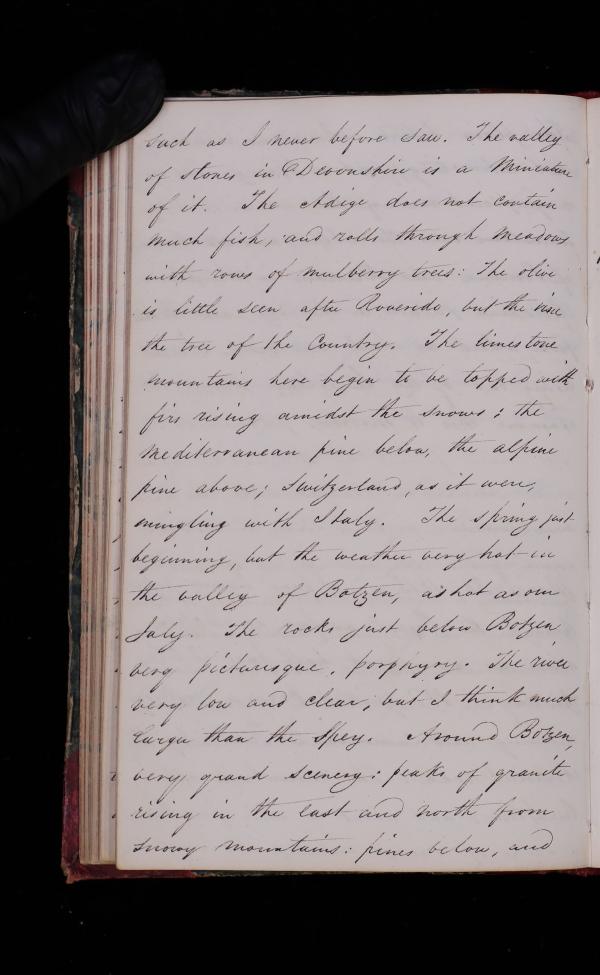 such as I never before saw. The valley
of stones in Devonshire is a Miniature
of it. The Adige does not contain
much fish, and rolls through meadows
with rows of mulberry trees: The olive
is little seen after Roverido, but the vine
the tree of the Country. The limestone
mountains here begin to be topped with
firs rising amidst the snows: the
Mediterranean pine below, the alpine
pine above; Switzerland, as it were,
mingling with Italy. The spring just
beginning, but the weather very hot in
the valley of Botzen, as hot as our
July. The rocks just below Botzen
very picturesque, porphyry. The river
very low and clear, but I think much
larger than the Spey. Around Botzen,
very grand scenery: peaks of granite
rising in the east and north from
snowy mountains: pines below, and